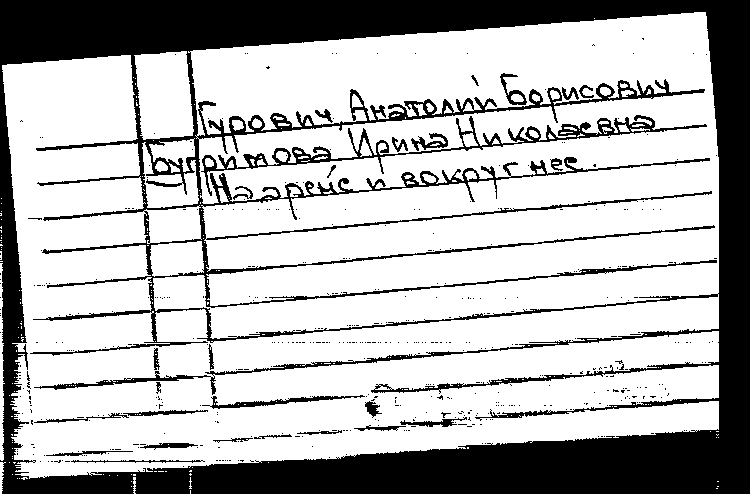 Гурович, Анатолий Борисович
Бугримова Ирина Николаевна
На арене и вокруг нее.